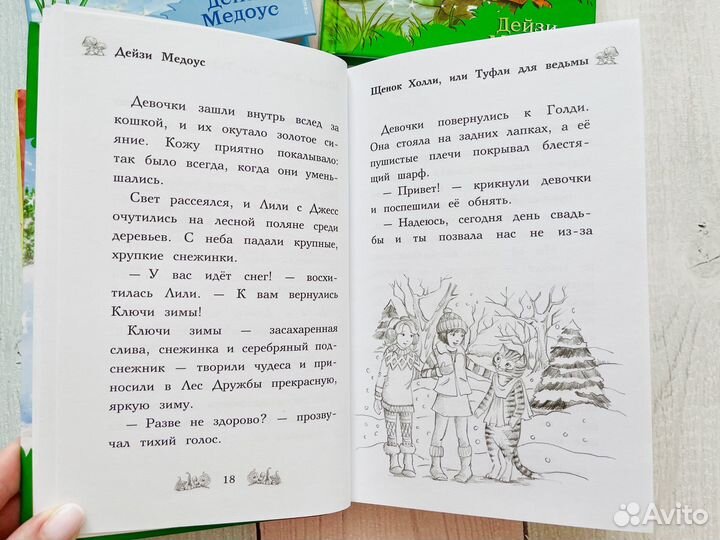 Дейзи
Медоус
Дейзи
Дейзи Медоус
Девочки зашли внутрь вслед за
кошкой, и их окутало золотое си-
яние. Кожу приятно покалывало:
так было всегда, когда они умень-
шались.
Свет рассеялся, и Лили с Джесс
очутились на лесной поляне среди
деревьев. С неба падали крупные,
хрупкие снежинки.
— У вас идёт снег! — восхи-
тилась Лили. — К вам вернулись
Ключи зимы!
Ключи зимы — засахаренная
слива, снежинка и серебряный под-
снежник — творили чудеса и при-
носили в Лес Дружбы прекрасную,
яркую зиму.
— Разве не здорово? — прозву-
чал тихий голос.
18
Щенок Холли, или Туфли для ведьмы
Девочки повернулись к Голди.
Она стояла на задних лапках, а её
пушистые плечи покрывал блестя-
щий шарф.
— Привет! — крикнули девочки
и поспешили её обнять.
— Надеюсь, сегодня день свадь-
бы и ты позвала нас не из-за
Avito